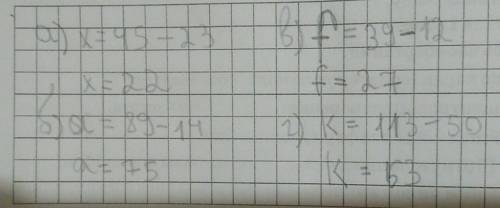 а) x = 45 - 23
x = 22
б) a = 89 - 14
a = 75
в) f = 39 - 12
f = 27
г) k = 113 - 50
k = 63